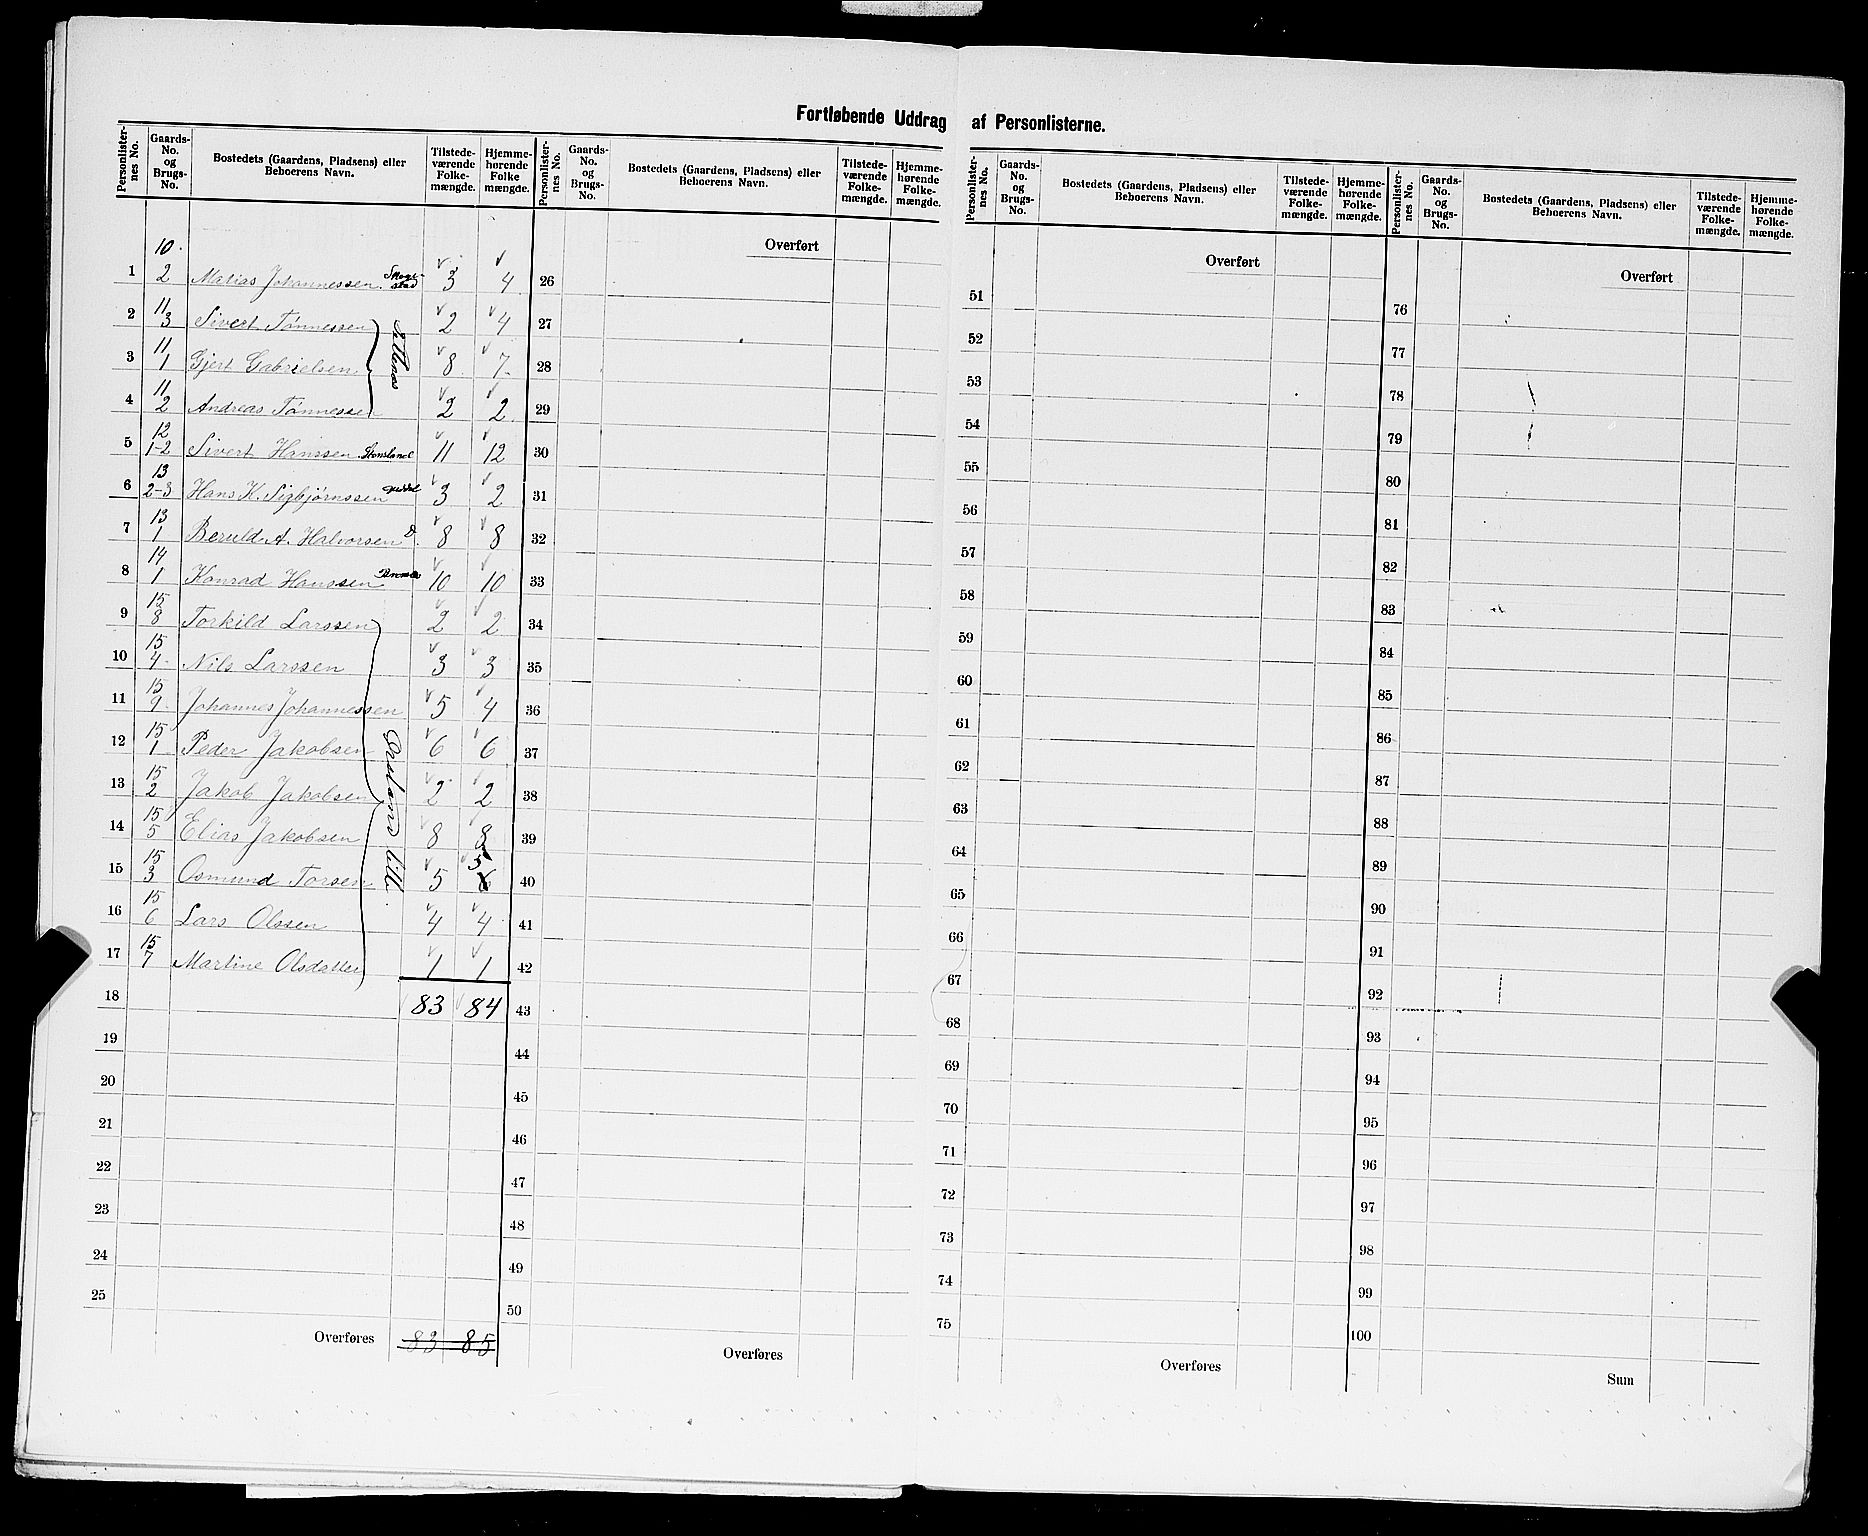 Fortløbende Uddrag af Personlisterne.
Personlisternes No. | Gaards-No. og Brugs-No. | Bostedets (Gaardens, Pladsens) eller Beboerens Navn. | Tilstedeværende Folkemængde. | Hjemmehørende Folkemængde.
1 | 10 2 | Matias Johannessen | 3 | 4
2 | 11 3 | Sivert Tønnessen | 2 | 4
3 | 11 1 | Gjert Gabrielsen | 8 | 7
4 | 11 2 | Andreas Tønnessen | 2 | 2
5 | 12 1-2 | Sivert Hanssen | 11 | 12
6 | 13 2-3 | Hans K. Sigbjørnssen | 3 | 2
7 | 13 1 | Beruld A. Halvorsen | 8 | 8
8 | 14 1 | Konrad Hanssen | 10 | 10
9 | 15 8 | Torkild Larssen | 2 | 2
10 | 15 4 | Nils Larssen | 3 | 3
11 | 15 9 | Johannes Johannessen | 5 | 4
12 | 15 1 | Peder Jakobsen | 6 | 6
13 | 15 2 | Jakob Jakobsen | 2 | 2
14 | 15 5 | Elias Jakobsen | 8 | 8
15 | 15 3 | Osmund Torsen | 5 | 5 6
16 | 15 6 | Lars Olssen | 4 | 4
17 | 15 7 | Martine Olsdatter | 1 | 1
18 | 83 | 84
19
20
21
22
23
24
25
Overføres | 83 | 85
Personlisternes No. | Gaards-No. og Brugs-No. | Bostedets (Gaardens, Pladsens) eller Beboerens Navn. | Tilstedeværende Folkemængde. | Hjemmehørende Folkemængde.
Overført
26
27
28
29
30
31
32
33
34
35
36
37
38
39
40
41
42
43
44
45
46
47
48
49
50
Overføres
Personlisternes No. | Gaards-No. og Brugs-No. | Bostedets (Gaardens, Pladsens) eller Beboerens Navn. | Tilstedeværende Folkemængde. | Hjemmehørende Folkemængde.
Overført
51
52
53
54
55
56
57
58
59
60
61
62
63
64
65
66
67
68
69
70
71
72
73
74
75
Overføres
Personlisternes No. | Gaards-No. og Brugs-No. | Bostedets (Gaardens, Pladsens) eller Beboerens Navn. | Tilstedeværende Folkemængde. | Hjemmehørende Folkemængde.
Overført
76
77
78
79
80
81
82
83
84
85
86
87
88
89
90
91
92
93
94
95
96
97
98
99
100
Sum